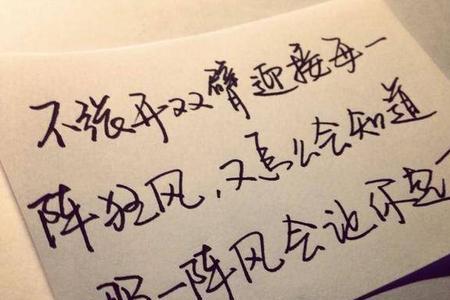 不张开双臂迎接每一
阵狂风，又怎么会知道
那一阵风会让你